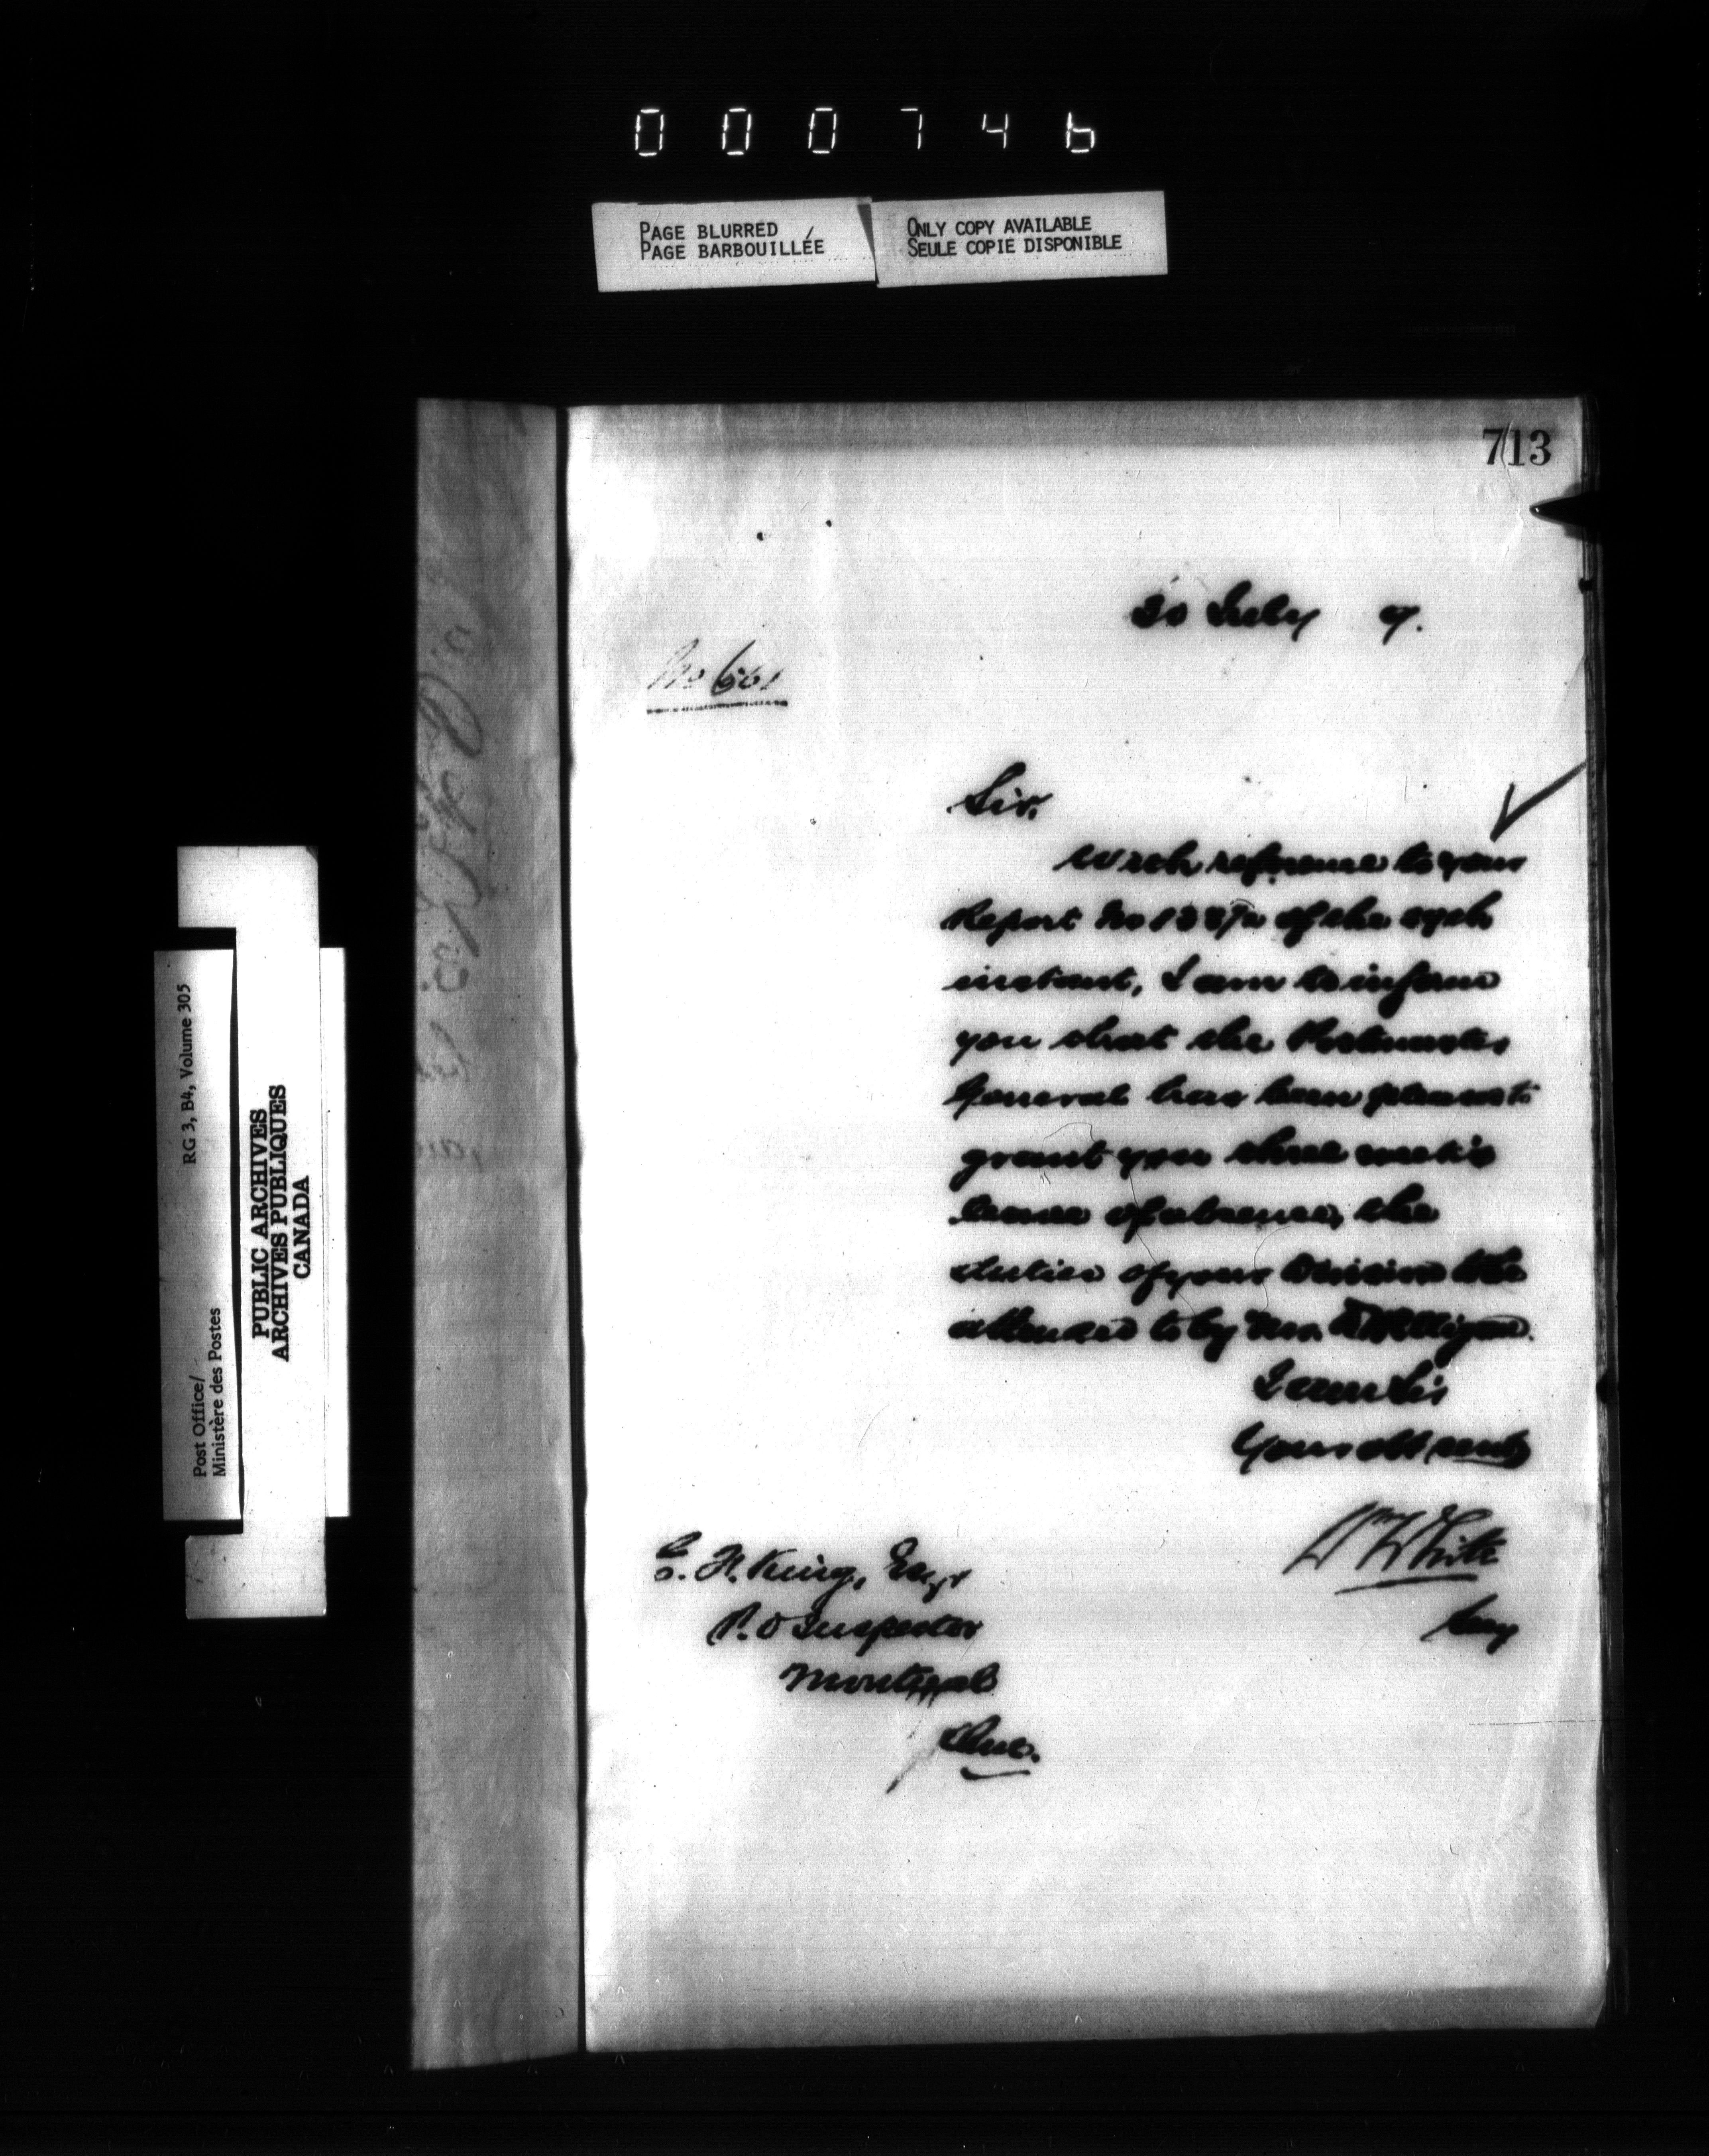 000746
PAGE BLURRED
PAGE BARBOUILLÉE
ONLY COPY AVAILABLE
SEULE COPIE DISPONIBLE
713
30 July 9.
No 661
Sir,
With reference to your
Report No of the
instant, I am to inform
you that the Postmaster
General has been pleased to
grant you three week's
leave of absence, the
duties of your Division to be
attended to by Mr.
I am Sir
Your obt servt
Wm White
Secy
C. F. King, Esqr
P. O Inspector
Montreal
RG 3, B4, Volume 305
Post Office/
Ministère des Postes
PUBLIC ARCHIVES
ARCHIVES PUBLIQUES
CANADA